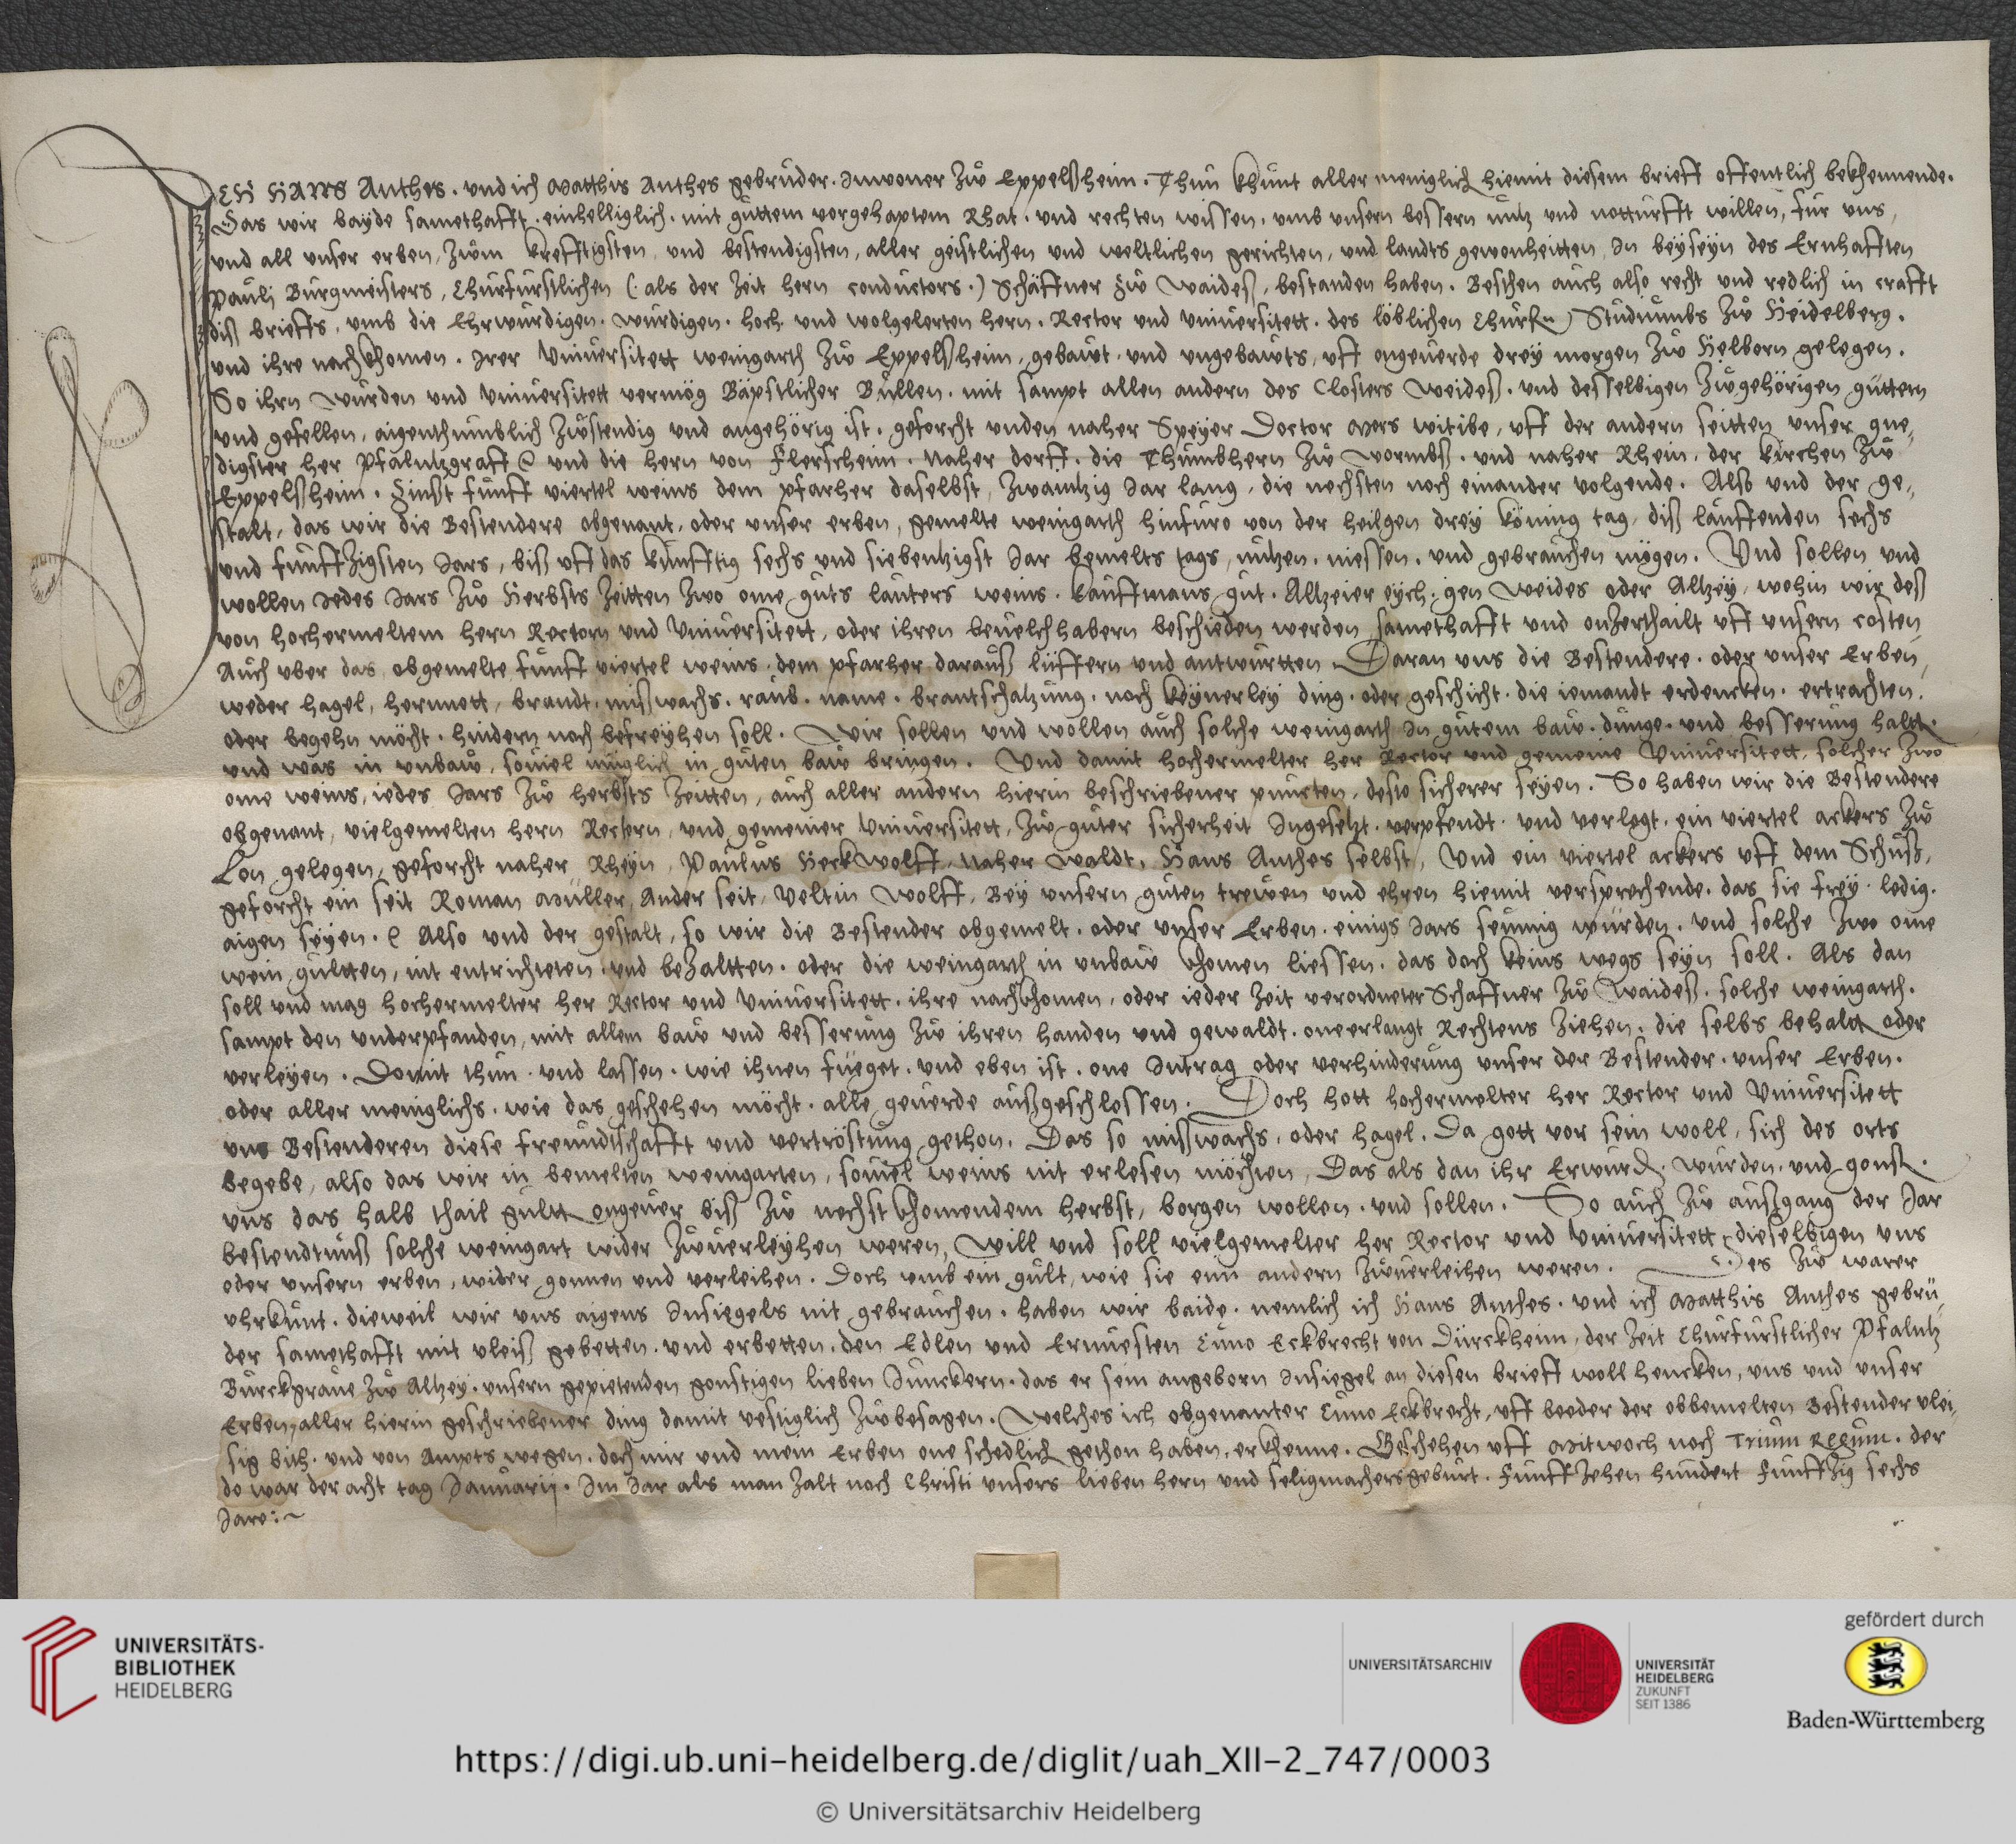 ICH HANS Anthes. und ich Matthis Anthes gebruder. Inwoner zů Eppelßheim. Thun khunt aller meniglich hiemit diesem brieff offentlich bekhennende.
Das wir bayde samethafft. einhelliglich. mit guttem vorgehaptem Rhat. und rechten wissen. umb unsern bessern nutz und notturfft willen, fur uns,
und all unser erben, zům krefftigsten, und bestendigsten, aller geistlichen und weltlichen gerichten, und landts gewonheitten, In beÿseÿn des Ernhafften
Pauli Burgmeisters, Churfurstlichen (. als der Zeit hern conductors.) Schäffner zů Waideß, bestanden haben. Bestehen auch also recht und redlich in crafft
diß brieffs, umb die Ehrwurdigen. wurdigen. hoch. und wolgelerten hern. Rector und Universitett. des löblichen Churfn Studiumbs zů Heidelberg.
und ihre nachkhomen. Irer Universitett weingarth zů Eppelßheim, gebawt. und ungebawts, uff ongeverde dreÿ morgen zů Helborn gelegen.
So ihrn wurden und Universitett vermög Bäpstlicher Bullen. mit sampt allen andern des Closters Weideß. und desselbigen zůgehörigen güttern
und gefellen, aigenthumblich zůstendig und angehörig ist. geforcht unden naher Speyer Doctor Mers witibe, uff der andern seitten unser gne„
digster her Pfaltzgraff @ und die hern von Flerscheim. Naher dorff. die Thumbhern zů Wormbß. und naher Rhein. der kirchen zů
Eppelßheim. Zinßt funff viertel weins dem pfarher daselbst, zwantzig Jar lang, die nechsten noch einander volgende. Also und der ge„
stalt, das wir die Bestendere obgenant, oder unser erben, gemelte weingarth hinfuro von der heilgen dreÿ köning tag, diß lauffenden sechs
und funffzigsten Jars, biß uff das kunfftig sechs und siebentzigst Jar bemelts tags, nutzen. niessen. und gebrauchen mögen. Und sollen und
wollen Jedes Jars zů Herbsts zeitten zwo ome guts lauters weins. kauffmans gut. Altzeier eych. gen Weides oder Altzey, wohin wir deß
von hochermeltem hern Rectorn und Universitett, oder ihren bevelchhabern bescheiden werden samethafft und onzerthailt uff unsern costen,
Auch uber das obgemelte funff viertel weins. dem pfarher darauß lüffern und antwurtten. Daran uns die Bestendere. oder unser Erben,
weder hagel, hernnett, brandt. mißwachs. raub. name. brantschatzung. noch keÿnerleÿ ding. oder geschicht. die iemandt erdencken. ertrachten.
oder begehn möcht. hindern noch befreÿhen soll. Wir sollen und wollen auch solche weingarth In gutem baw. dunge. und besserung haltt.
und was in unbaw, soviel müglich in guten baw bringen. Und damit hochermelter her Rector und gemeine Universitett, solcher zwo
ome weins, iedes Jars zů herbsts zeitten, auch aller andern hierin beschriebener puncten, desto sicherer seÿen. So haben wir die Bestendere
obgenant, vielgemelten hern Rectorn, und gemeiner Universitett, zů guter sicherheit Ingesetzt. verpfendt. und verlegt. ein viertel ackers zů
Lon gelegen, geforcht naher Rheÿn, Paulus Herckwolff, Naher Waldt, Hans Anthes selbst, Und ein viertel ackers uff dem Schuß,
geforcht ein seit Roman Muller, Ander seit, Veltin Wolff, Beÿ unsern guten trewen und ehren hiemit versprechende. das sie freÿ. ledig.
aigen seÿen. Also und der gestalt, so wir die Bestender obgemelt. oder unser Erben. einigs Jars seumig wurden. und solche zwo ome
wein gultten, nit entrichteten. und bezaltten. oder die weingarth in unbaw khomen liessen. das doch keins wegs seÿn soll. Als dan
soll und mag hochermelter her Rector und Universitett. ihre nachkhomen, oder ieder zeit verordneter Schaffner zů Waideß. solche weingarth.
sampt den underpfanden, mit allem baw und besserung zů ihren handen und gewaldt. one erlangt Rechtens ziehen. die selbs behaltt oder
verleÿen. Domit thun. und lassen. wie ihnen fueget. und eben ist. one Intrag oder verhinderung unser der Bestender. unser Erben.
oder aller meniglichs. wie das geschehen möcht. alle geverde außgeschlossen. Doch hott hochermelter her Rector und Universitett
uns Bestenderen diese freundtschafft und vertröstung gethon. Das so mißwachs, oder hagel. Da gott vor sein woll, sich des orts
begebe, also das wir in bemelten weingarten, soviel weins nit erlesen möchten, Das als dan ihr Erwurd. wurden. und gonst.
uns das halb thail gultt ongever biß zů nechstkhomendem herbst, borgen wollen. und sollen. So auch zů außgang der Jar
bestendtnuß solche weingart wider zůverleÿhen weren, Will und soll vielgemelter her Rector und Universitett dieselbigen uns
oder unsern erben, wider gonnen und verleihen. Doch umb ein gult, wie sie eim andern zůverleihen weren. Des zů warer
uhrkunt. dieweil wir uns aigens Insiegels nit gebrauchen. haben wir baide. nemlich ich Hans Anthes. und ich Matthis Anthes gebrü„
der samethafft mit vleiß gebetten. und erbetten. den Edlen und Ernvesten Cuno Eckbrecht von Dürckheim, der zeit Churfurstlicher Pfaltz
Burckgrave zů Altzey. unsern gepietenden gonstigen lieben Junckern. das er sein angeborn Insiegel an diesen brieff woll hencken, uns und unser
Erben, aller hierin geschriebener ding damit vestiglich zůbesagen. Welches ich obgenanter Cuno Eckbrecht, uff beeder der obbemelten Bestender vlei„
sig bith. und von Ampts wegen. doch mir und mein Erben one schedlich gethon haben, erkhenne. Geschehen uff Mitwoch noch Trium Regum. der
do war der acht tag Januarij. Im Jar als man zalt noch Christi unsers lieben hern und seligmachers geburt. Funffzehen hundert Funffzig sechs
Jare :~
UNIVERSITÄTS-
BIBLIOTHEK
HEIDELBERG
UNIVERSITÄTSARCHIV
UNIVERSITÄT
HEIDELBERG
ZUKUNFT
SEIT 1386
gefördert durch
Baden-Württemberg
https://digi.ub.uni-heidelberg.de/diglit/uah_XII-2_747/0003
© Universitätsarchiv Heidelberg